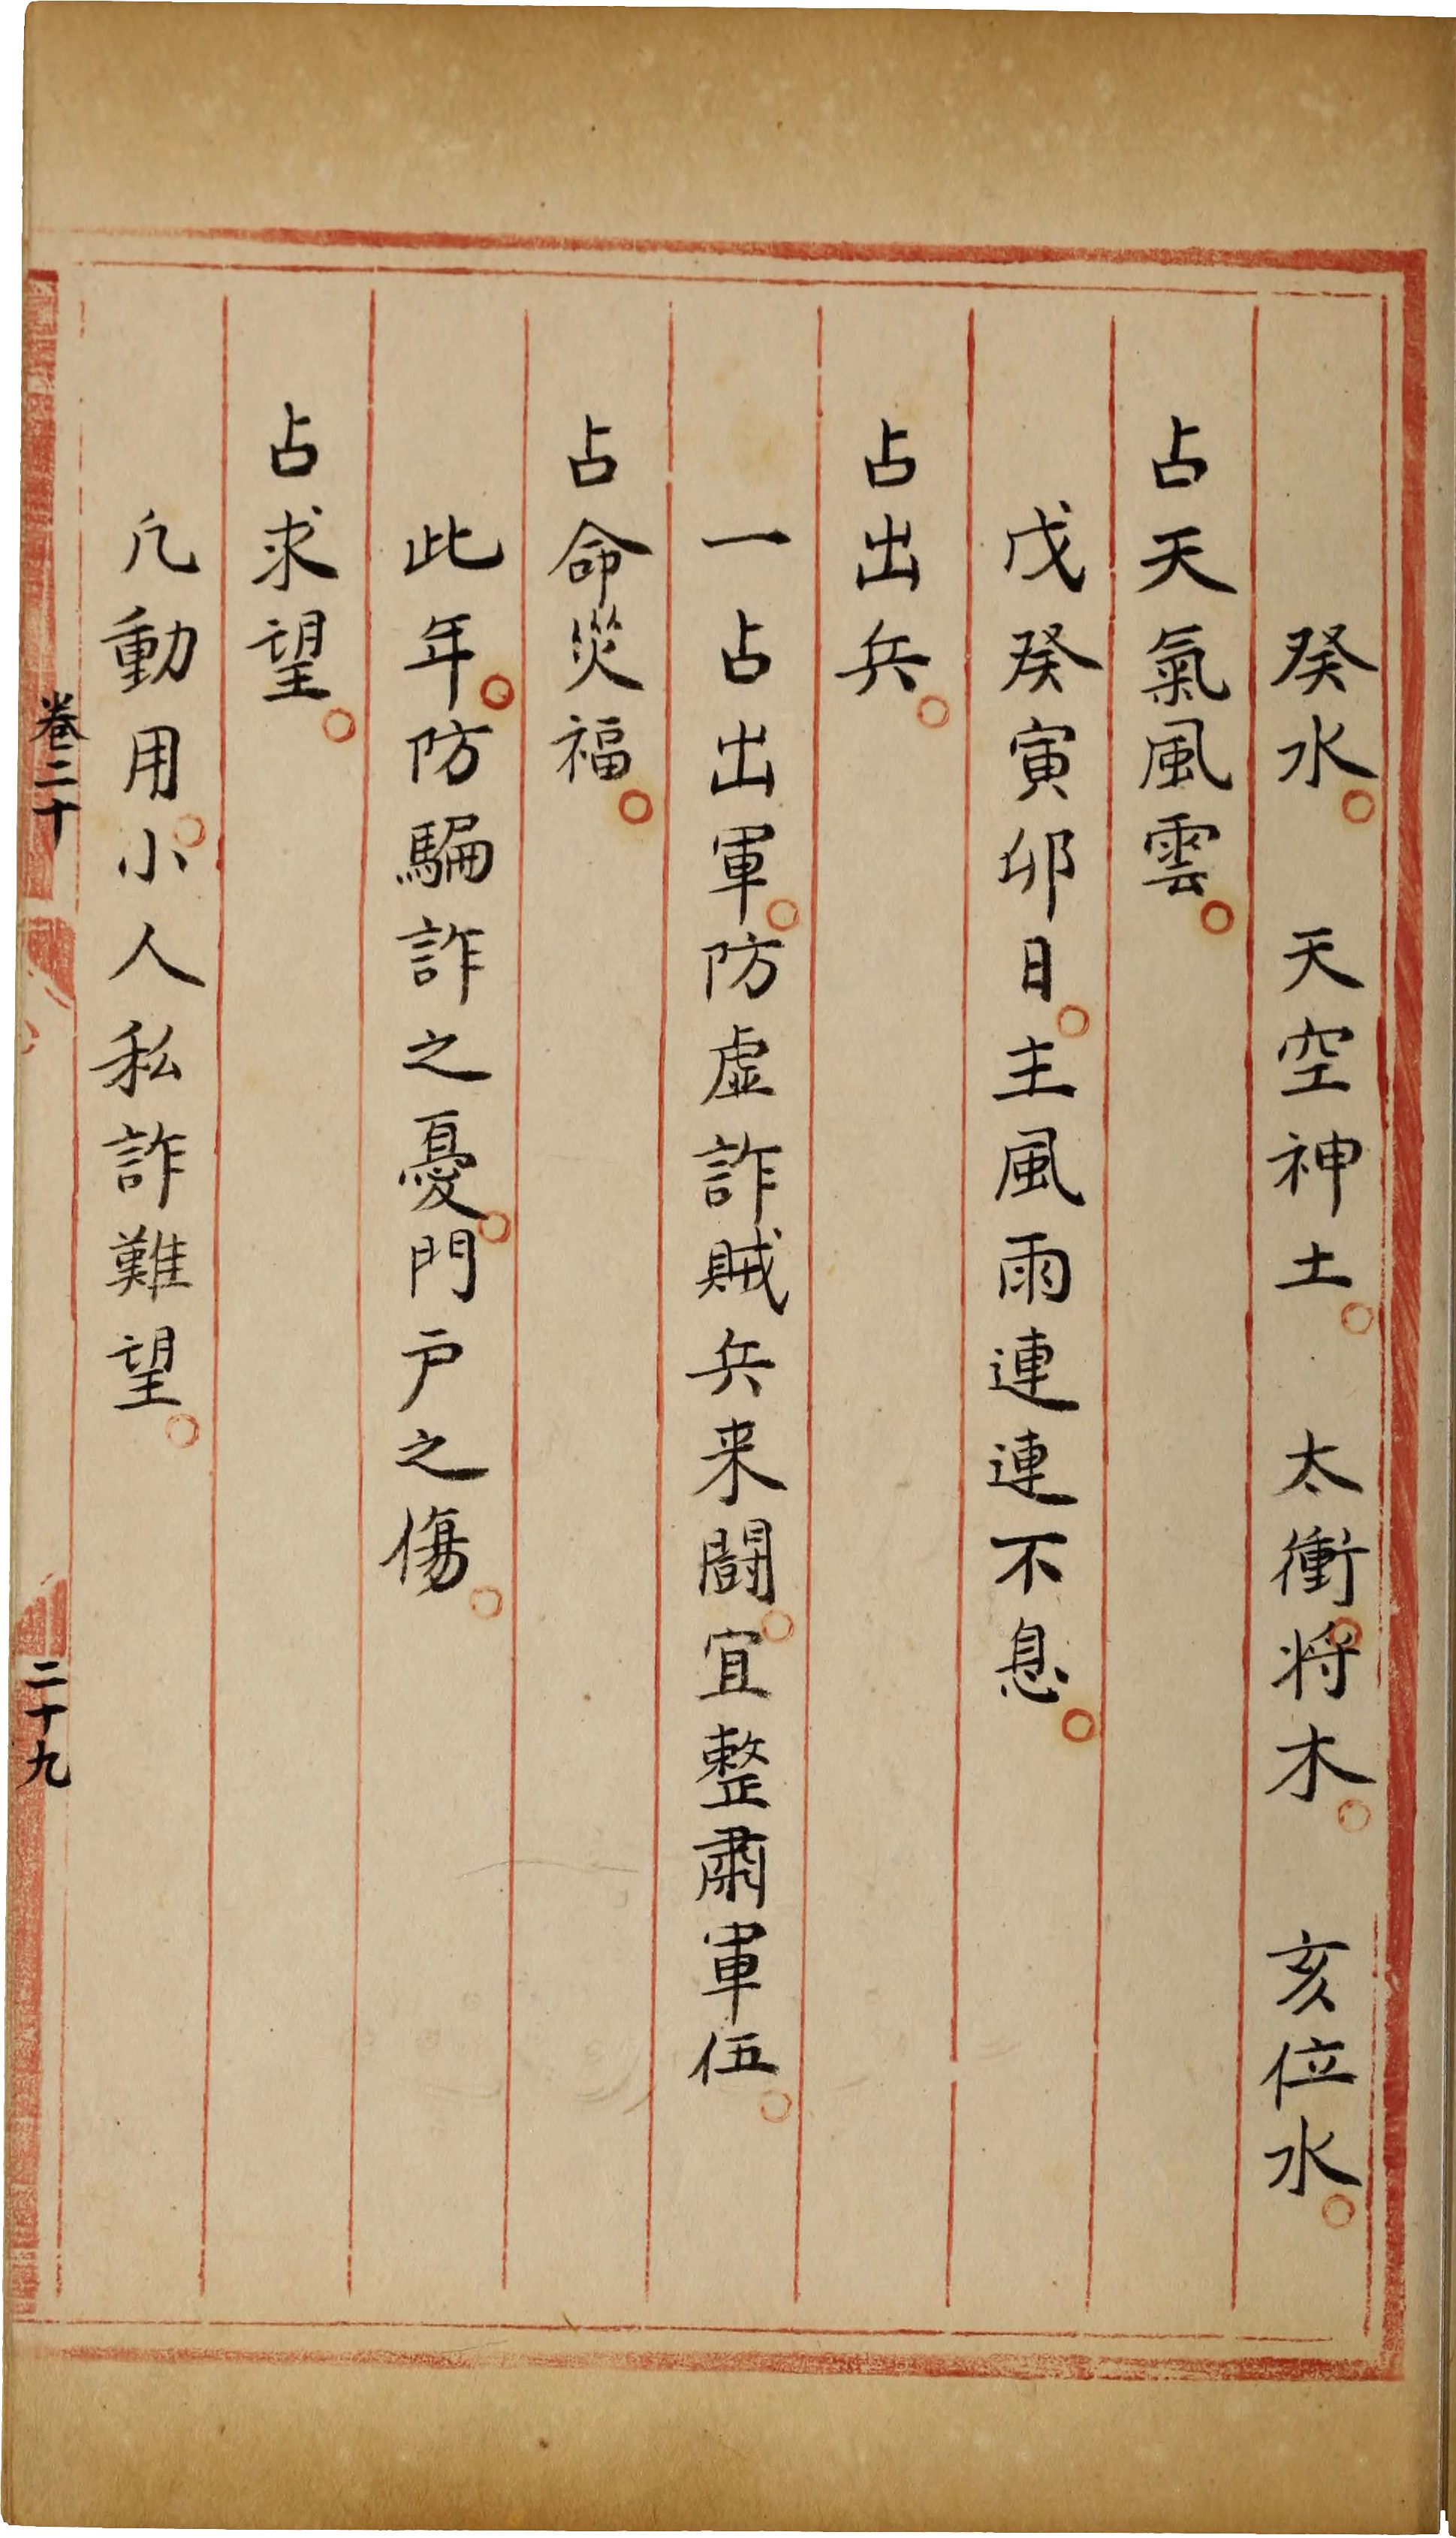 癸水。　天空神土。　太衝將木。　亥位水。
占天氣風雲。
戊癸寅卯日。主風雨連連不息。
占出兵。
一占出軍。防虛詐賊兵来鬪。宜整肅軍伍。
占命災福。
此年。防騙詐之憂。門户之傷。
占求望。
凡動用。小人私詐難望。
卷二十
二十九